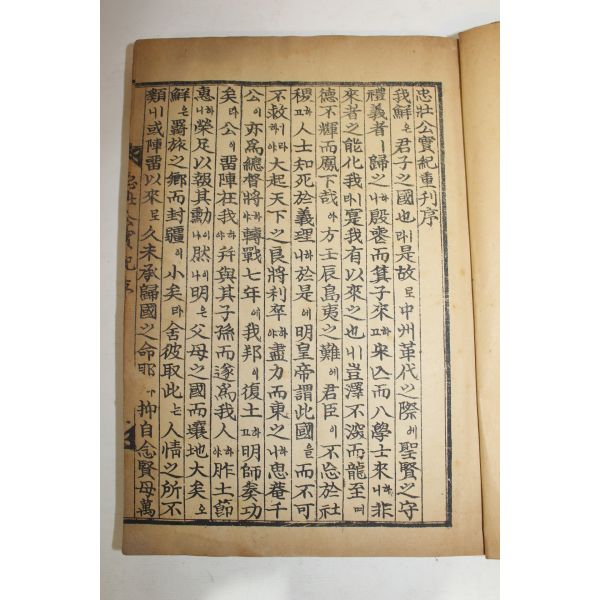 忠壯公實紀重刊序
我鮮은君子之國也ㅣ라是故로中州革代之際에聖賢之守
禮義者ㅣ歸之나하殷喪而箕子來고하宋亡而八學士來나하非
來者之能化我ㅣ라寔我有以來之也ㅣ니豈澤不深而龍至며
德不輝而鳳下哉아方壬辰島夷之難에君臣이不忘於社
稷고하人士知死於義理나하於是에明皇帝謂此國을而不可
不救라하야大起天下之良將利卒야하盡力而東之나하忠菴千
公이亦爲總督將야하轉戰七年에我邦이復土고하明師奏功
矣라公이留陣在我야하幷與其子孫而遂爲我人야하胙土節
惠나하榮足以報其勳이나然이나明은父母之國而壤地大矣오
鮮은羇旅之鄕而封疆이小矣라舍彼取此는人情之所不
類니或陣留以來로久未承歸國之命耶아抑自念賢母萬
忠壯公實紀序